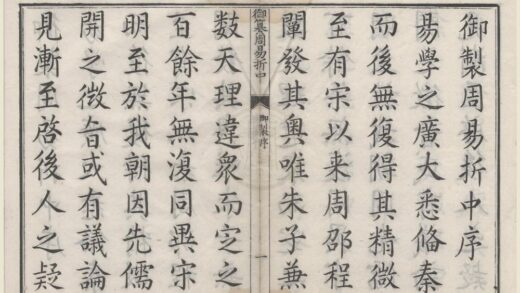 御製周易折中序
易學之廣大悉備秦
而後無復得其精微
至有宋以来周邵程
闡發其奥唯朱子兼
御纂周易折中
御製序
一
數天理違衆而定之
百餘年無復同異宋
明至於我朝因先儒
開之微㫖或有議論
見漸至啓後人之疑